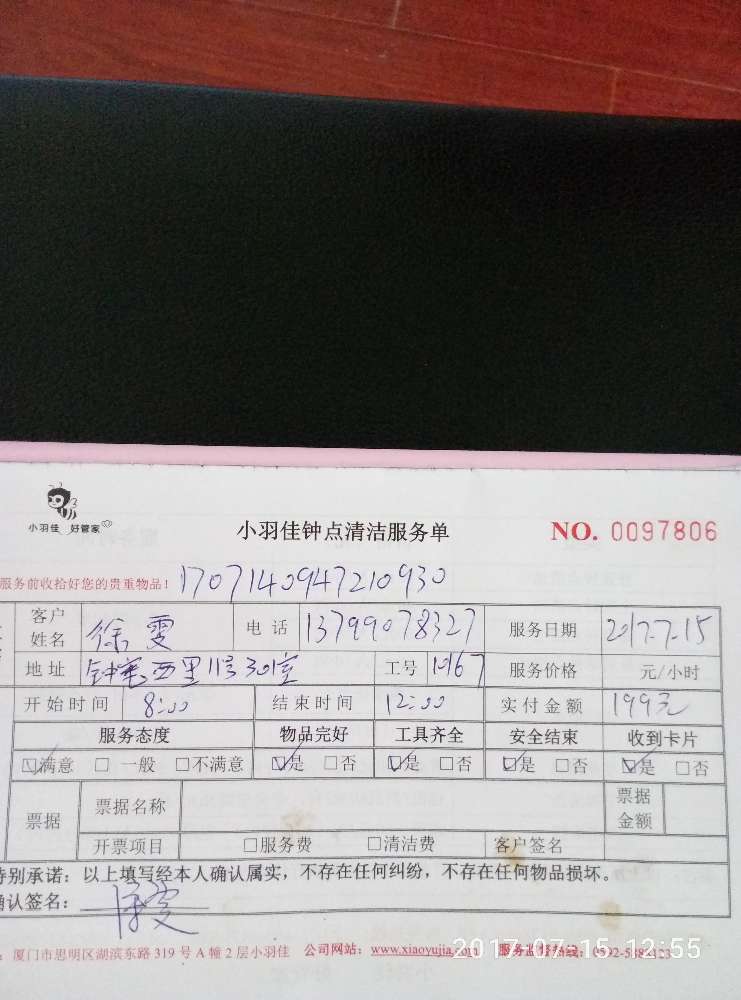 小羽佳 好管家
小羽佳钟点清洁服务单
NO. 0097806
服务前收拾好您的贵重物品!
1707140947210930
客户姓名 徐雯 电话 13799078327 服务日期 2017.7.15
地址 钟宅西里11号301室 工号 10167 服务价格 元/小时
开始时间 8:00 结束时间 12:00 实付金额 199元
服务态度 物品完好 工具齐全 安全结束 收到卡片
☑满意 □一般 □不满意 ☑是 □否 ☑是 □否 ☑是 □否 ☑是 □否
票据 票据名称 票据金额
开票项目 □服务费 □清洁费 客户签名
特别承诺：以上填写经本人确认属实，不存在任何纠纷，不存在任何物品损坏。
确认签名： 徐雯
: 厦门市思明区湖滨东路 319 号 A 幢 2 层小羽佳 公司网站：www.xiaoyujia.com 服务监督热线：0592-5
2017.07.15 12:55